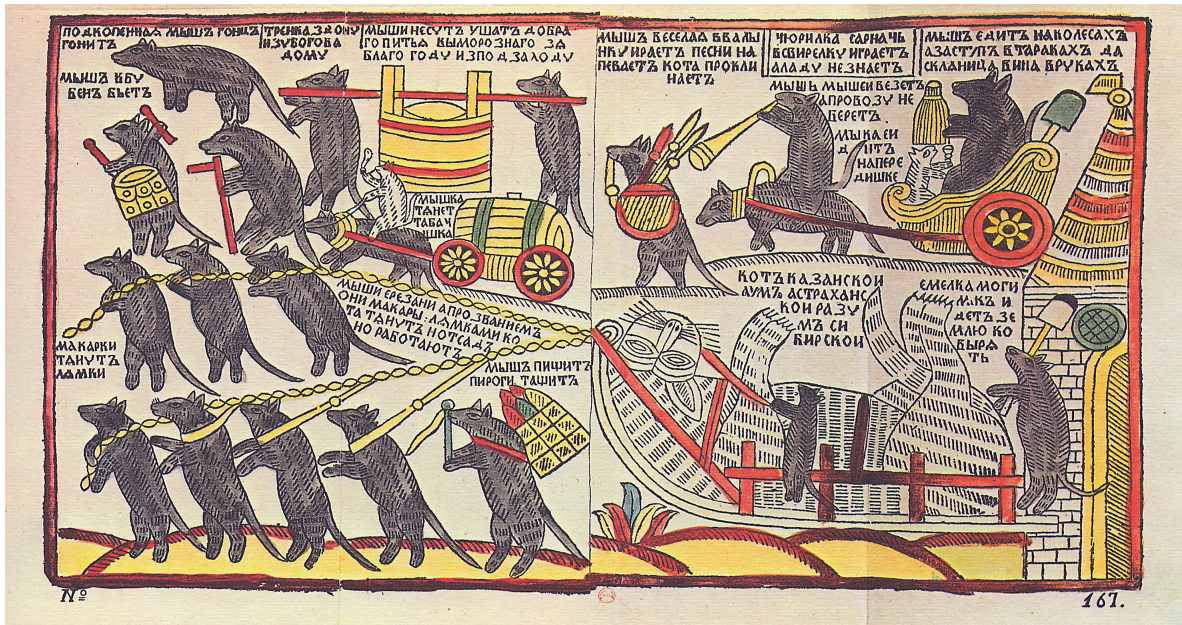 ПОДКОПЕННАЯ МЫШЪ ГОНЦЪ
ГОНИТЪ
ТРЕНКА З ДОНУ
ИЗ УБОГОВА
ДОМУ
МЫШИ НЕСУТЪ УШАТЪ ДОБРА
ГО ПИТЬЯ ВЫМОРОЗНАГО ЗА
БЛАГО ГОДУ ИЗ ПОД ЗАХОДУ
МЫШЪ ВБУ
БЕНЪ БЬЕТЪ
МЫШКА
ТЯНЕТ
ТАБАЧ
ИШКА
МЫШИ ЕРЕЗАНИ А ПРОЗВАНИЕМЪ
ОНИ МАКАРЫ ЛЯМКАМИ КО
ТА ТЯНУТЪ И ОТСАДЪ
НО РАБОТАЮТЪ
МАКАРКИ
ТЯНУТЪ
ЛЯМКИ
МЫШЪ ПИЩИТЪ
ПИРОГИ ТАЩИТЪ
МЫШЪ ВЕСЕЛАЯ ВВАЛЫ
НКУ ИРАЕТЪ ПЕСНИ НА
ПЕВАЕТЪ КОТА ПРОКЛИ
НАЕТЪ
ЧЮРИЛКА САРНАЧЬ
ВСВИРЕЛКУ ИГРАЕТЪ
А ЛАДУ НЕ ЗНАЕТЪ
МЫШЪ ЕДИТЪ НА КОЛЕСАХЪ
А ЗАСТУПЪ ВТАРАКАХЪ ДА
СКЛЯНИЦА ВИНА ВРУКАХЪ
МЫШЬ МЫШЕЙ ВЕЗЕТЪ
А ПРОВОЗУ НЕ
БЕРЕТЪ
МЫКА СИ
ДИТЪ
НАПЕРЕ
ДИШКЕ
КОТЪ КАЗАНСКОИ
А УМЪ АСТРАХАНС
КОИ РАЗУ
МЪ СИ
БИРСКОИ
ЕМЕЛКА МОГИ
ЛАКЪ И
ДЕТЪ ЗЕ
МЛЮ КО
ВЫРЯ
ТЬ
№ 167.